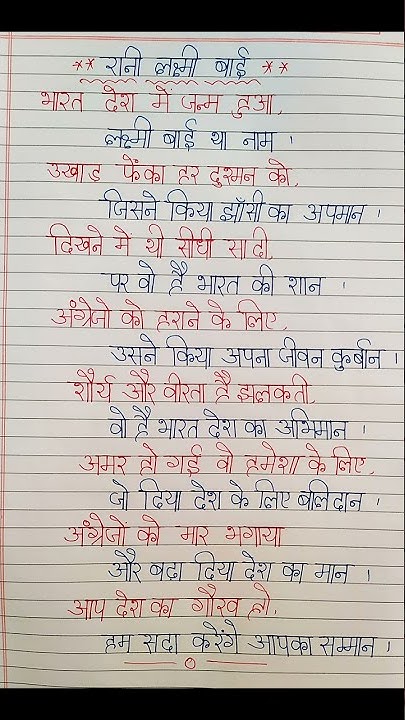 ** रानी लक्ष्मी बाई **
भारत देश में जन्म हुआ,
लक्ष्मी बाई था नाम ।
उखाड़ फेंका हर दुश्मन को,
जिसने किया झाँसी का अपमान ।
दिखने में थी सीधी सादी,
पर वो है भारत की शान ।
अंग्रेजो को हराने के लिए,
उसने किया अपना जीवन कुर्बान ।
शौर्य और वीरता है झलकती,
वो है भारत देश का अभिमान ।
अमर हो गई वो हमेशा के लिए,
जो दिया देश के लिए बलिदान ।
अंग्रेजों को मार भगाया
और बढा दिया देश का मान ।
आप देश का गौरव हो,
हम सदा करेंगे आपका सम्मान ।